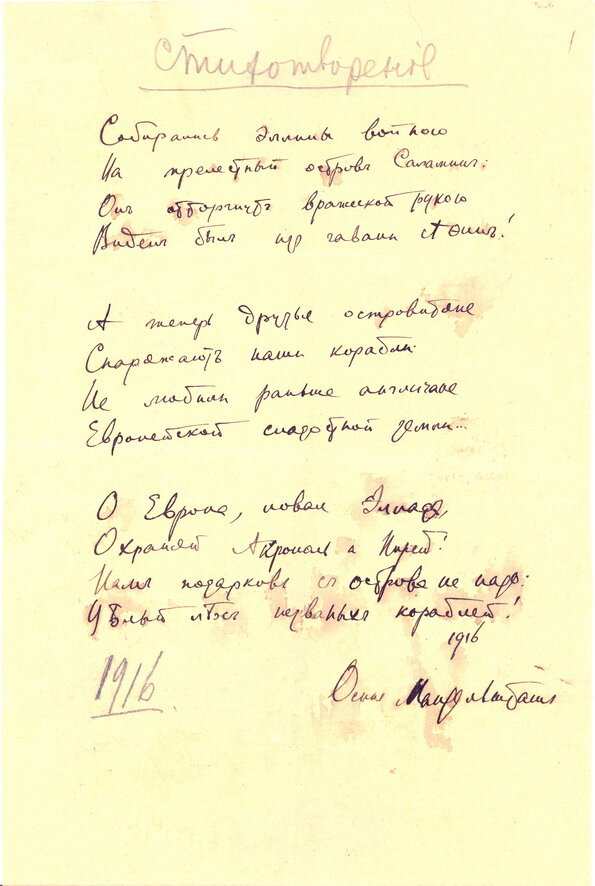 1
Стихотворенiе
Собирались Эллины войною
На прелестный островъ Саламинъ:
Онъ отторгнутъ вражеской рукою
Видѣнъ былъ изъ гавани Аѳинъ!
А теперь друзья островитяне
Снаряжаютъ наши корабли:
Не любили раньше англичане
Европейской сладостной земли...
О Европа, новая Эллада,
Охраняй Акрополь и Пирей!
Намъ подарковъ съ острова не надо:
Цѣлый лѣсъ незваныхъ кораблей!
1916
1916
Осипъ Мандельштамъ